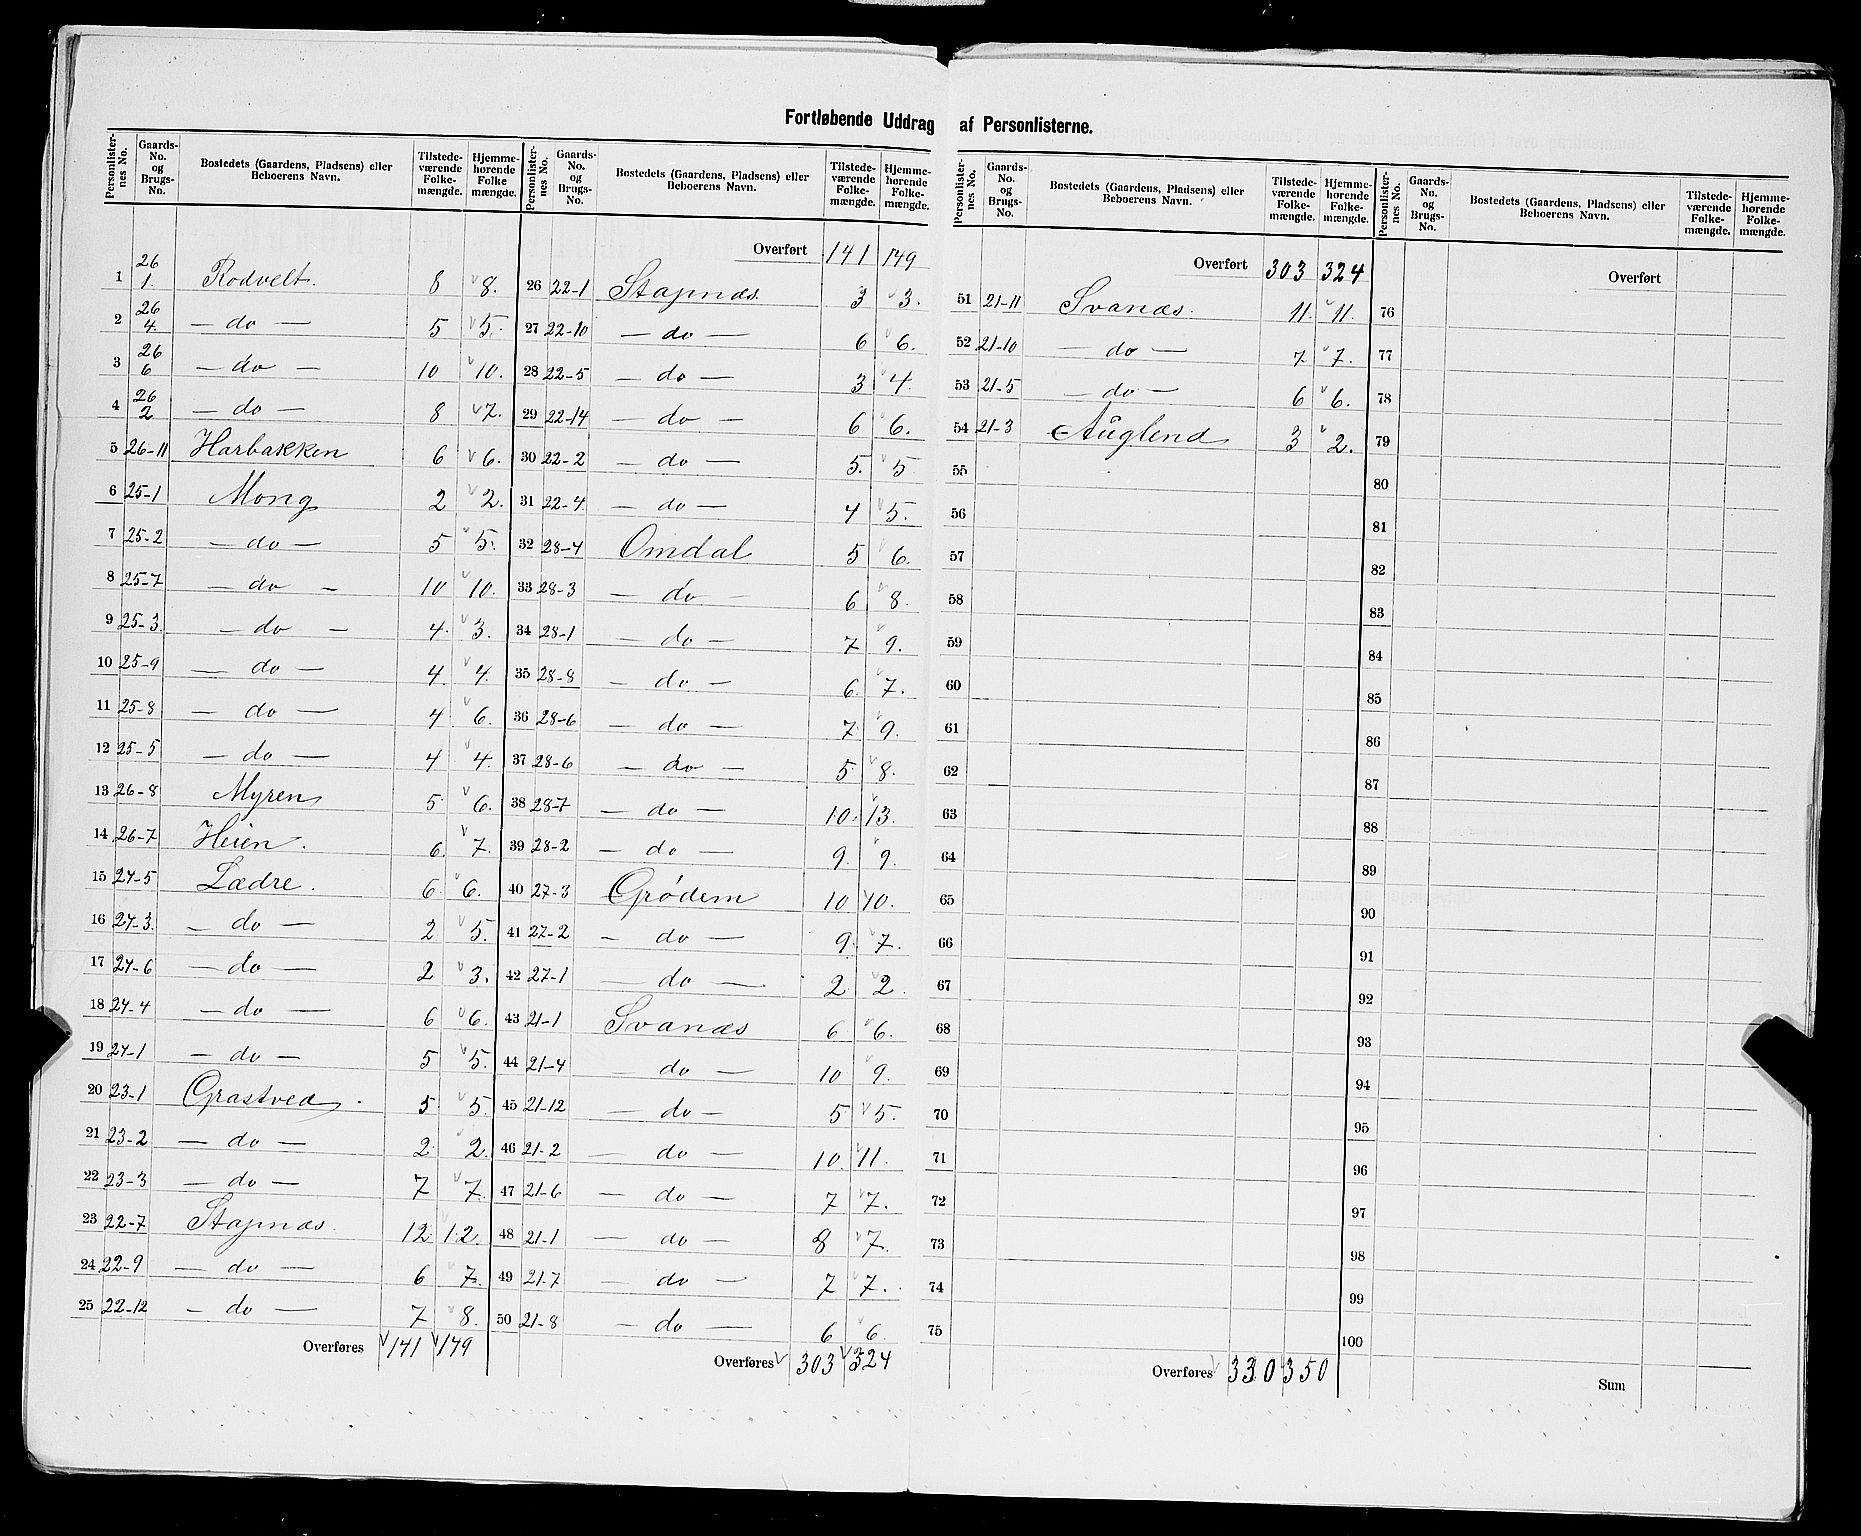 Fortløbende Uddrag af Personlisterne.
Personlister-nes No. Gaards-No. og Brugs-No. Bostedets (Gaardens, Pladsens) eller Beboerens Navn. Tilstede-værende Folke-mængde. Hjemme-hørende Folke mængde.
1 26 1. Rodvelt. 8 8.
2 26 4. — do — 5 5.
3 26 6 — do — 10 10.
4 26 2 — do — 8 7.
5 26-11 Harbakken 6 6.
6 25-1 Mong 2 2.
7 25-2 — do — 5 5.
8 25-7 — do — 10 10.
9 25-3. — do — 4. 3.
10 25-9 — do — 4. 4.
11 25-8 — do — 4 6.
12 25-5 — do — 4 4.
13 26-8 Myren 5 6.
14 26-7 Heien. 6. 7.
15 24-5 Lædre. 6. 6.
16 24-3. — do — 2 5.
17 24-6 — do — 2 3.
18 24-4 — do — 6 6.
19 24-1 — do — 5 5.
20 23-1 Grastved. 5 5.
21 23-2 — do — 2. 2.
22 23-3 — do — 7 7.
23 22-7 Stapnæs. 12. 12.
24 22-9 — do — 6 7.
25 22-12 — do — 7 8.
Overføres 141 149
Personlister-nes No. Gaards-No. og Brugs-No. Bostedets (Gaardens, Pladsens) eller Beboerens Navn. Tilstede-værende Folke-mængde. Hjemme-hørende Folke-mængde.
Overført 141 149
26 22-1 Stapnæs. 3 3.
27 22-10 — do — 6 6.
28 22-5 — do — 3 4.
29 22-14 — do — 6 6.
30 22-2 — do — 5. 5
31 22-4. — do — 4 5.
32 28-4 Omdal 5 6.
33 28-3 — do — 6 8.
34 28-1 — do — 7 9.
35 28-8 — do — 6. 7.
36 28-6 — do — 7. 9.
37 28-6 — do — 5. 8.
38 28-7 — do — 10. 13.
39 28-2 — do — 9. 9.
40 27-3 Grødem 10 10.
41 27-2 — do — 9. 7.
42 27-1 — do — 2 2.
43 21-1 Svanæs 6 6.
44 21-4 — do — 10 9.
45 21-12 — do — 5 5.
46 21-2 — do — 10. 11.
47 21-6 — do — 7 7.
48 21-1 — do — 8 7.
49 21-7 — do — 7 7.
50 21-8 — do — 6 6.
Overføres 303 324
Personlister-nes No. Gaards-No. og Brugs-No. Bostedets (Gaardens, Pladsens) eller Beboerens Navn. Tilstede-værende Folke-mængde. Hjemme-hørende Folke-mængde.
Overført 303 324
51 21-11 Svanæs. 11. 11.
52 21-10 — do — 7 7.
53 21-5 — do — 6 6.
54 21-3 Auglend 3 2.
55
56
57
58
59
60
61
62
63
64
65
66
67
68
69
70
71
72
73
74
75
Overføres 330 350
Personlister-nes No. Gaards-No. og Brugs-No. Bostedets (Gaardens, Pladsens) eller Beboerens Navn. Tilstede-værende Folke-mængde. Hjemme-hørende Folke-mængde.
Overført
76
77
78
79
80
81
82
83
84
85
86
87
88
89
90
91
92
93
94
95
96
97
98
99
100
Sum